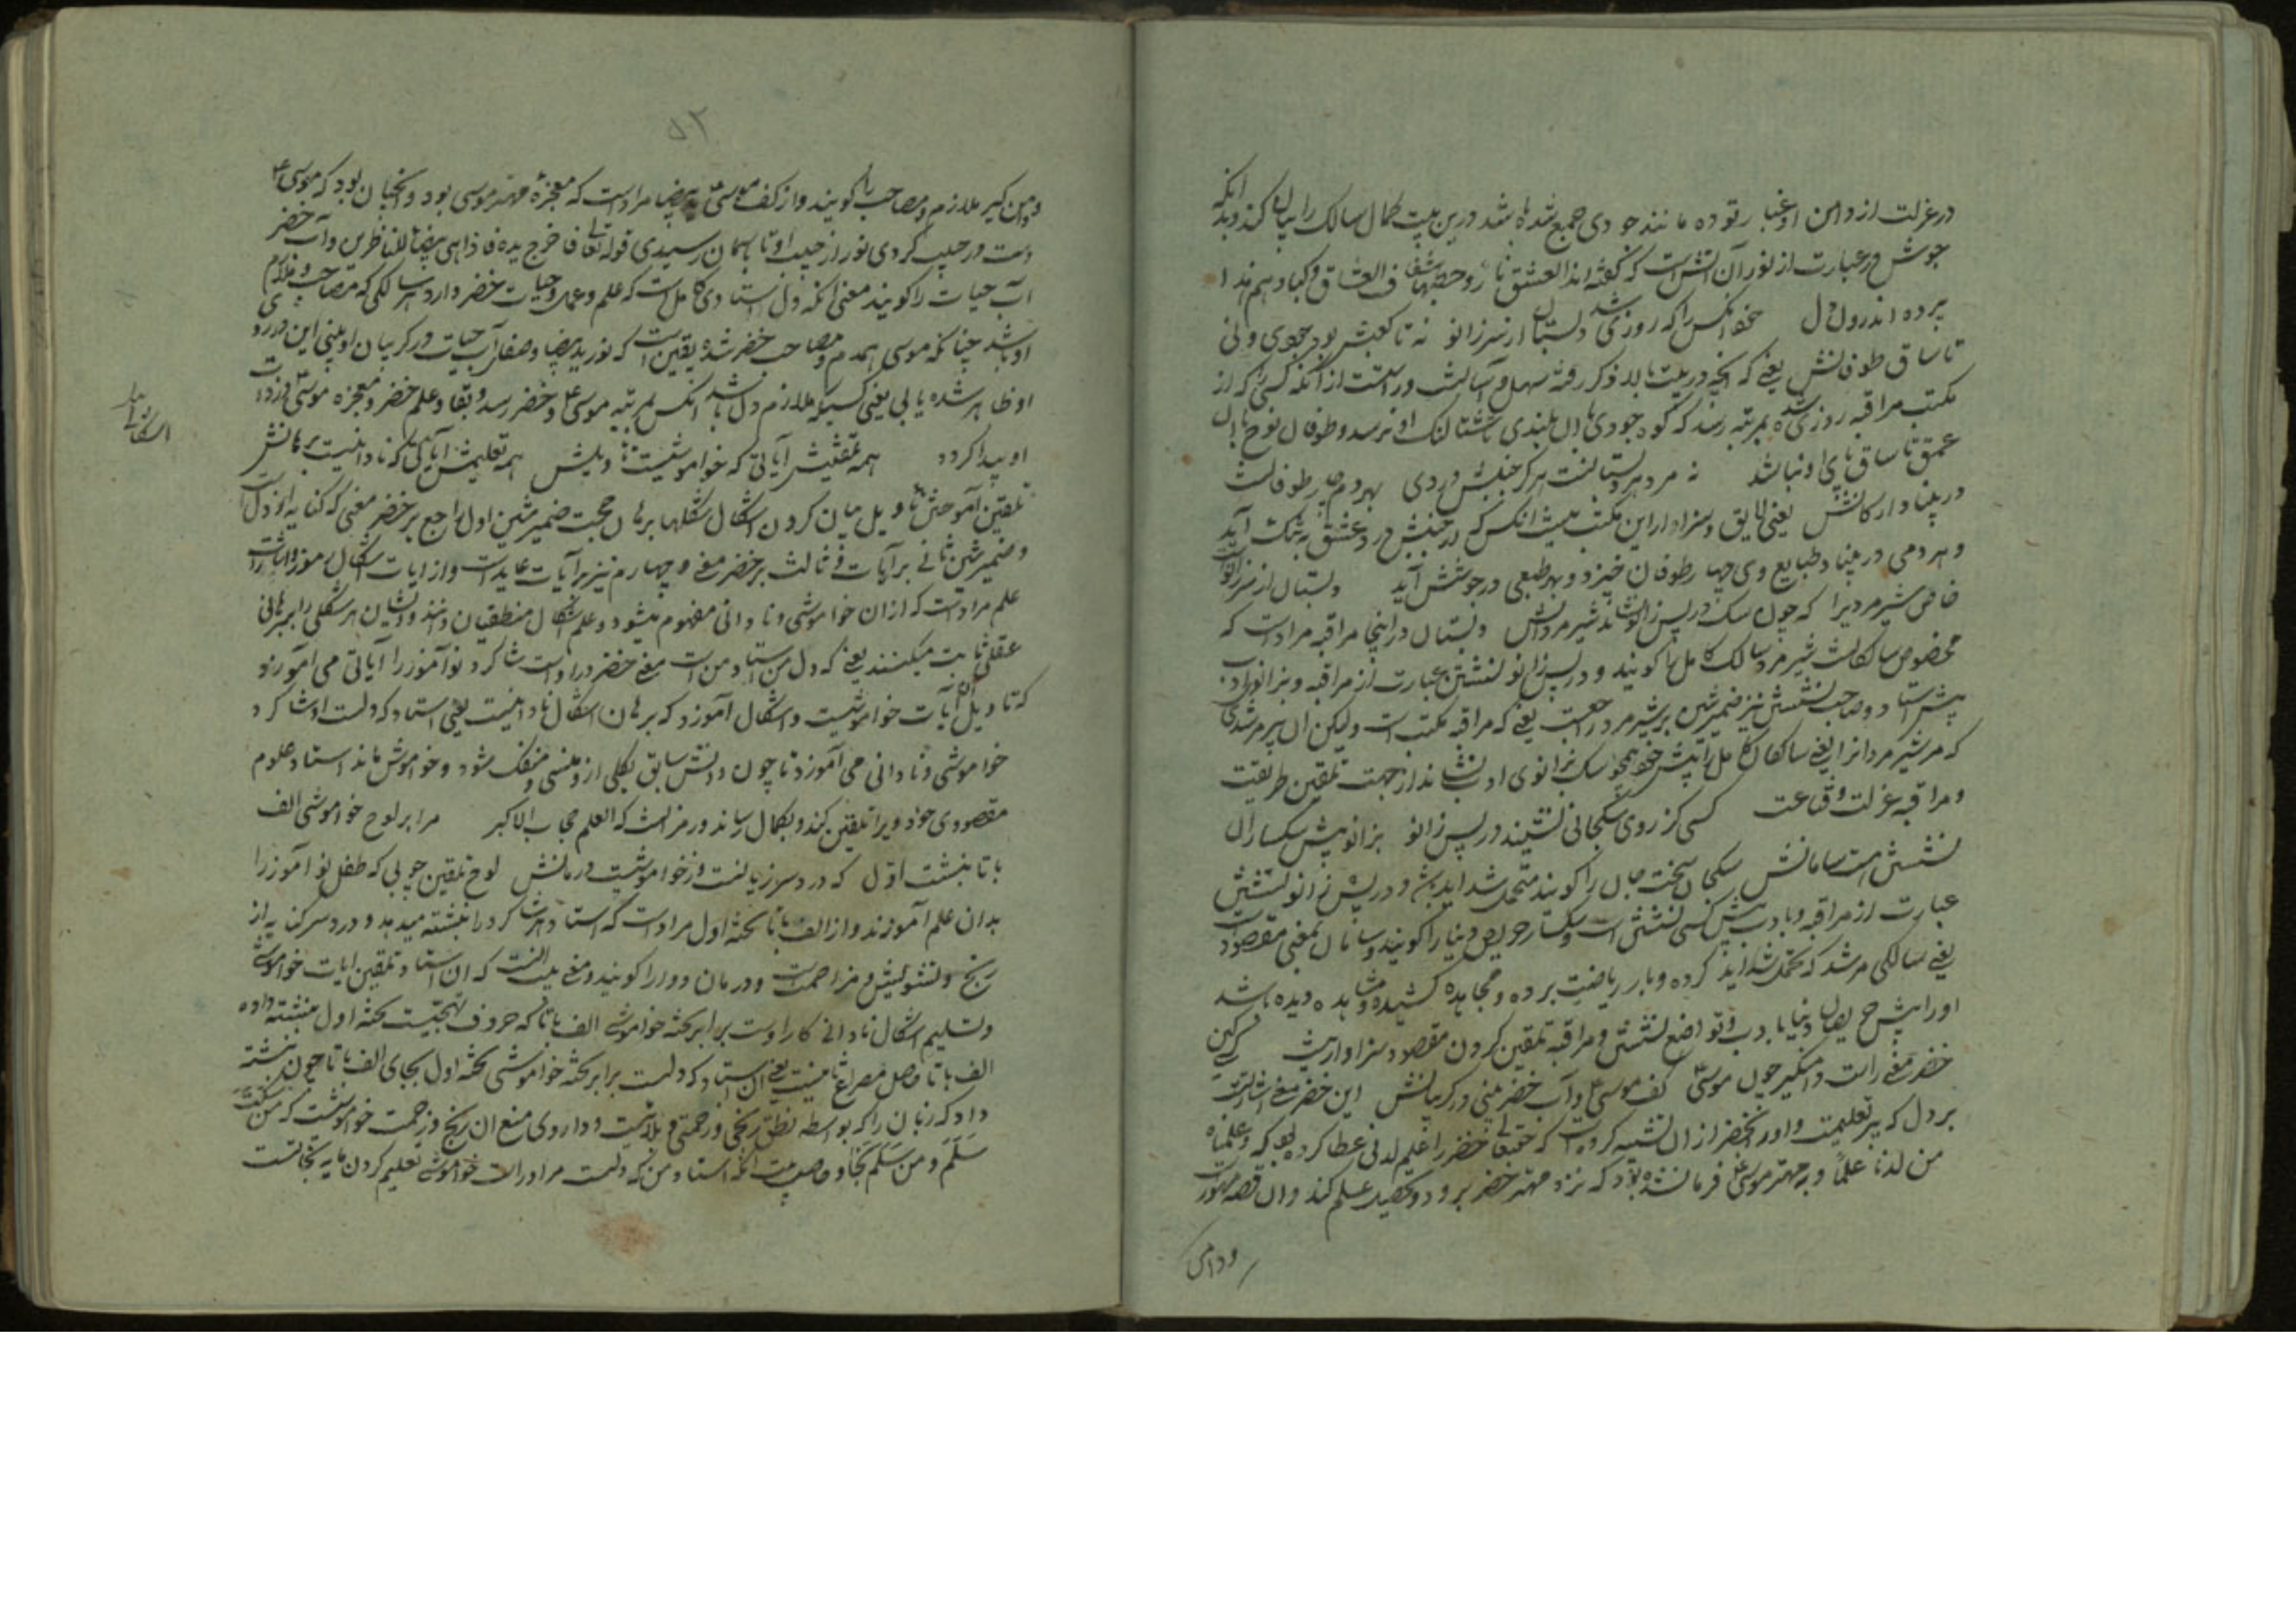 در عزلت از دامن او غبار توده مانند جودی جمع شده باشد درین بیت کمال سالک را بیان کند و بدانکه
جوش در عبارت از نور آن آتش است که گفته اند العشق نار و حصبها العشاق و کباد هم هذا
پرده اندر دل خود آنکس را که روزی شد دبستان از سر زانو نه تا کعبش بود جودی و نی
تا ساق طوفانش یعنی که آنچه در بیت بالا ذکر رفته سهل و آسانست در است از آنکه کسی که از
مکتب مراقبه روزی شده بمرتبه رسد که کوه جودی بآن بلندی تا شتالنگ او نرسد و طوفان نوح بآن
عمق تا ساق پای او نباشد نه مرد این دبستانست هر کز جنبش دردی بهر دم چار طوفانست
در بنیاد ارکانش یعنی لایق و سزاوار این مکتب نیست آنکس که در جنبش درد عشق به تنگ آید
و هر دمی در بنیاد طبایع وی چهار طوفان خیزد و بهر طبعی در جوشش آید دبستان از سر زانوست
خاص شیر مردیرا که چون سگ در پس زانو نشاند شیر مردانش دبستان در اینجا مراقبه مراد است که
مخصوص سالکانست شیر مرد سالک کامل را گویند و در پس زانو نشستن عبارت از مراقبه و بزانوی ادب
پیش استاد و صاحب نشستن نیز ضمیر شین بر شیر مرد راجعست یعنی که مراقبه مکتب است ولیکن آن پیر مرشدی
که مر شیر مردانرا یعنی سالکان کامل را پیش خود همچو سگ بزانوی ادب بنشاند از جهت تلقین طریقت
و مراقبه عزلت و قناعت کسی کز روی سگجانی نشیند در پس زانو بزانو پیش سگساران
نشستن نیست سامانش سگجان سخت جان را گویند متحمل شداید نیز و در پس زانو نشستن
عبارت از مراقبه و بادب پیش کسی نشستن است و سگسار حریص دنیا را گویند و سامان بمعنی مقصود است
یعنی سالکی مرشد که تحمل شداید کرده و بار ریاضت برده و مجاهده کشیده و مشاهده دیده باشد
او را پیش حریصان دنیا بادب و تواضع نشستن و مراقبه تلقین کردن مقصود و سزاوار نیست کسی کین
خضر معنی راست دامنگیر چون موسی کف موسی و آب خضر بینی در گریبانش این خضر معنی اشارتست
بر دل که پیر تعلیمست و او را بخضر از آن تشبیه کرده است که حقتعالی خضر را علم لدنی عطا کرده بود که و علمناه
من لدنا علما و به مهتر موسی فرمان شده بود که نزد مهتر خضر برود و تحصیل علم کند و آن قصه مشهور است
و دامن
۵۲
دامن گیر ملازم و مصاحب را گویند و از کف موسی ید بیضا مراد است که معجزه مهتر موسی بود و آنچنان بود که موسی
دست در جیب کردی نور از جیب او تا بآسمان رسیدی قوله تعالی فاخرج یده فاذا هی بیضاء للناظرین و آب خضر
آب حیات را گویند معنی آنکه دل استادی کامل است که علم و عمل و حیات خضر دارد هر سالکی که مصاحب و ملازم
او باشد چنانکه موسی همدم و مصاحب خضر شده یقین است که نور ید بیضا و صفای آب حیات در گریبان او بینی این در رو
او ظاهر شده یابی یعنی کسیکه ملازم دل باشد آنکس بمرتبه موسی و خضر رسد و بقا و علم خضر و معجزه موسی در ذات
او پیدا گردد همه تلقینش آیاتی که خاموشیست تاویلش همه تعلیمش اشکالی که نادانیست برهانش
تلقین آموختن تاویل بیان کردن اشکال شکلها برهان حجت ضمیر شین اول راجع بر خضر معنی که کنایه از دل است
و ضمیر شین ثانی بر آیات و ثالث بر خضر معنی و چهارم نیز بر آیات عایداست و از آیات اشکال رموز و اشارات
علم مراد است که از ان خاموشی و نادانی مفهوم میشود و علم اشکال منطقیان دانند و ایشان هر شکلی را ببرهانی
عقلی ثابت میکنند یعنی که دل من استاد من است معنی خضر در او است شاگرد نو آموز را آیاتی می آموزد
که تاویل آن آیات خاموشیست و اشکال آموزد که برهان اشکال نادانیست یعنی استاد که دلست او شاگرد
خواموشی و نادانی می آموزد تا چون دانش سابق بکلی از و منسی و منفک شود و خواموش ماند استاد علوم
مقصودی خود ویرا تلقین کند و بکمال رساند و رمز آنست که العلم حجاب الاکبر مرا بر لوح خواموشی الف
با تا نبشت اول که درد سر زبانست و ز خواموشیست درمانش لوح تلقین چوبی که طفل نو آموز را
بدان علم آموزند و از الف با تا تخته اول مراد است که استاد شاگرد را نبشته میدهد و درد سر کنایه از
رنج و تشویش و مزاحمت و درمان دوا را گویند و معنی بیت آنست که آن استاد تلقین آیات خواموشی
و تسلیم اشکال نادانی کار اوست برابر تخته خواموشی الف با تا که حروف تهجیست تخته اول نبشته داده
الف با تا حاصل مصراع ثانیست یعنی آن استاد که دلست برابر تخته خواموشی تخته اول بجای الف با تا چون نبشته
داد که زبان را که بواسطه نطق رنجی و زحمتی و بلاست و داروی منع آن رنج و زحمت خواموشیست که من سکت
سَلَم و من سَلَم نَجَا و حاصل بیت آنکه استاد من که دلست مرا در اول خواموشی تعلیم کردن مایه نجاتست